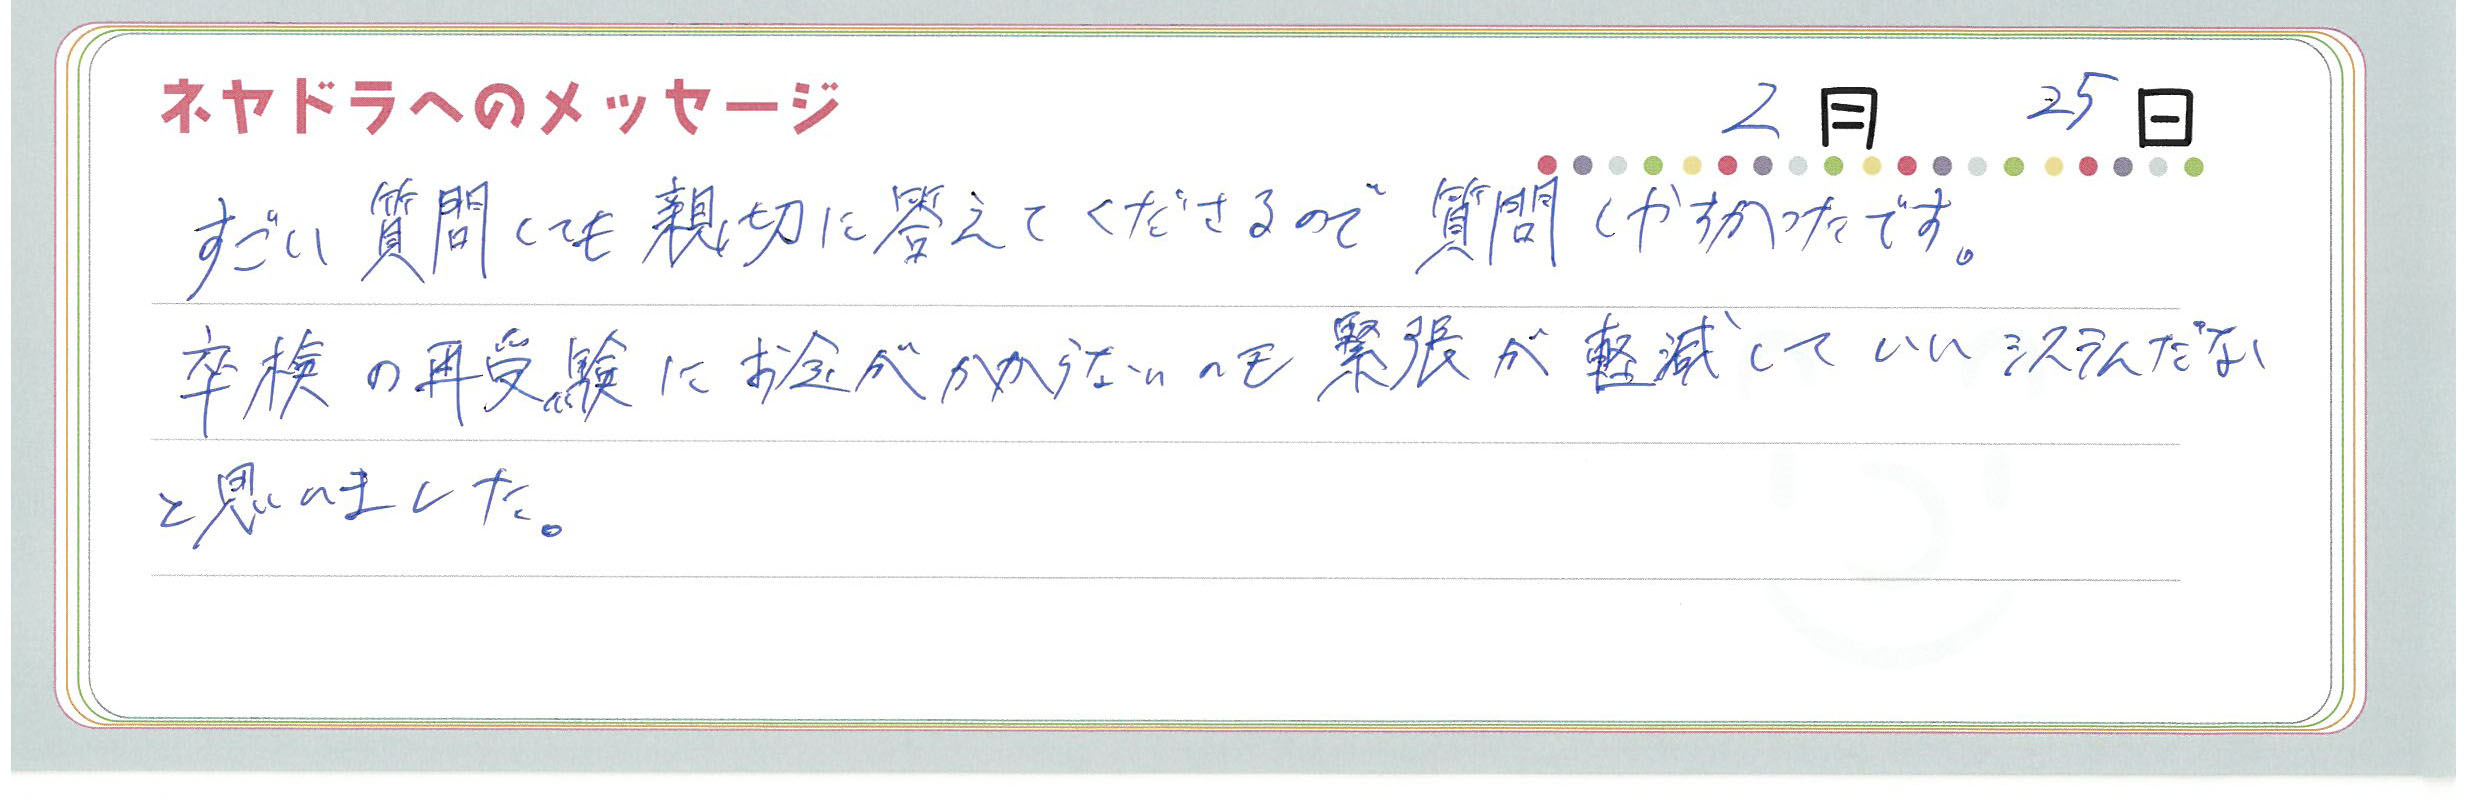 ネヤドラへのメッセージ
2月 25日
すごい質問しても親切に答えてくださるので質問しやすかったです。
卒検の再受験にお金がかからないのも緊張が軽減していいシステムだなぁ
と思いました。